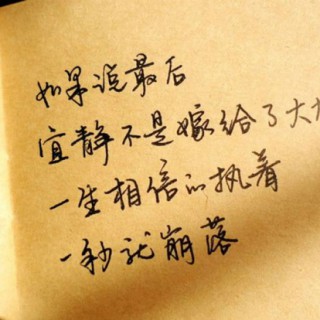 如果说最后
宜静不是嫁给了大
一生相信的执着
一秒就崩落